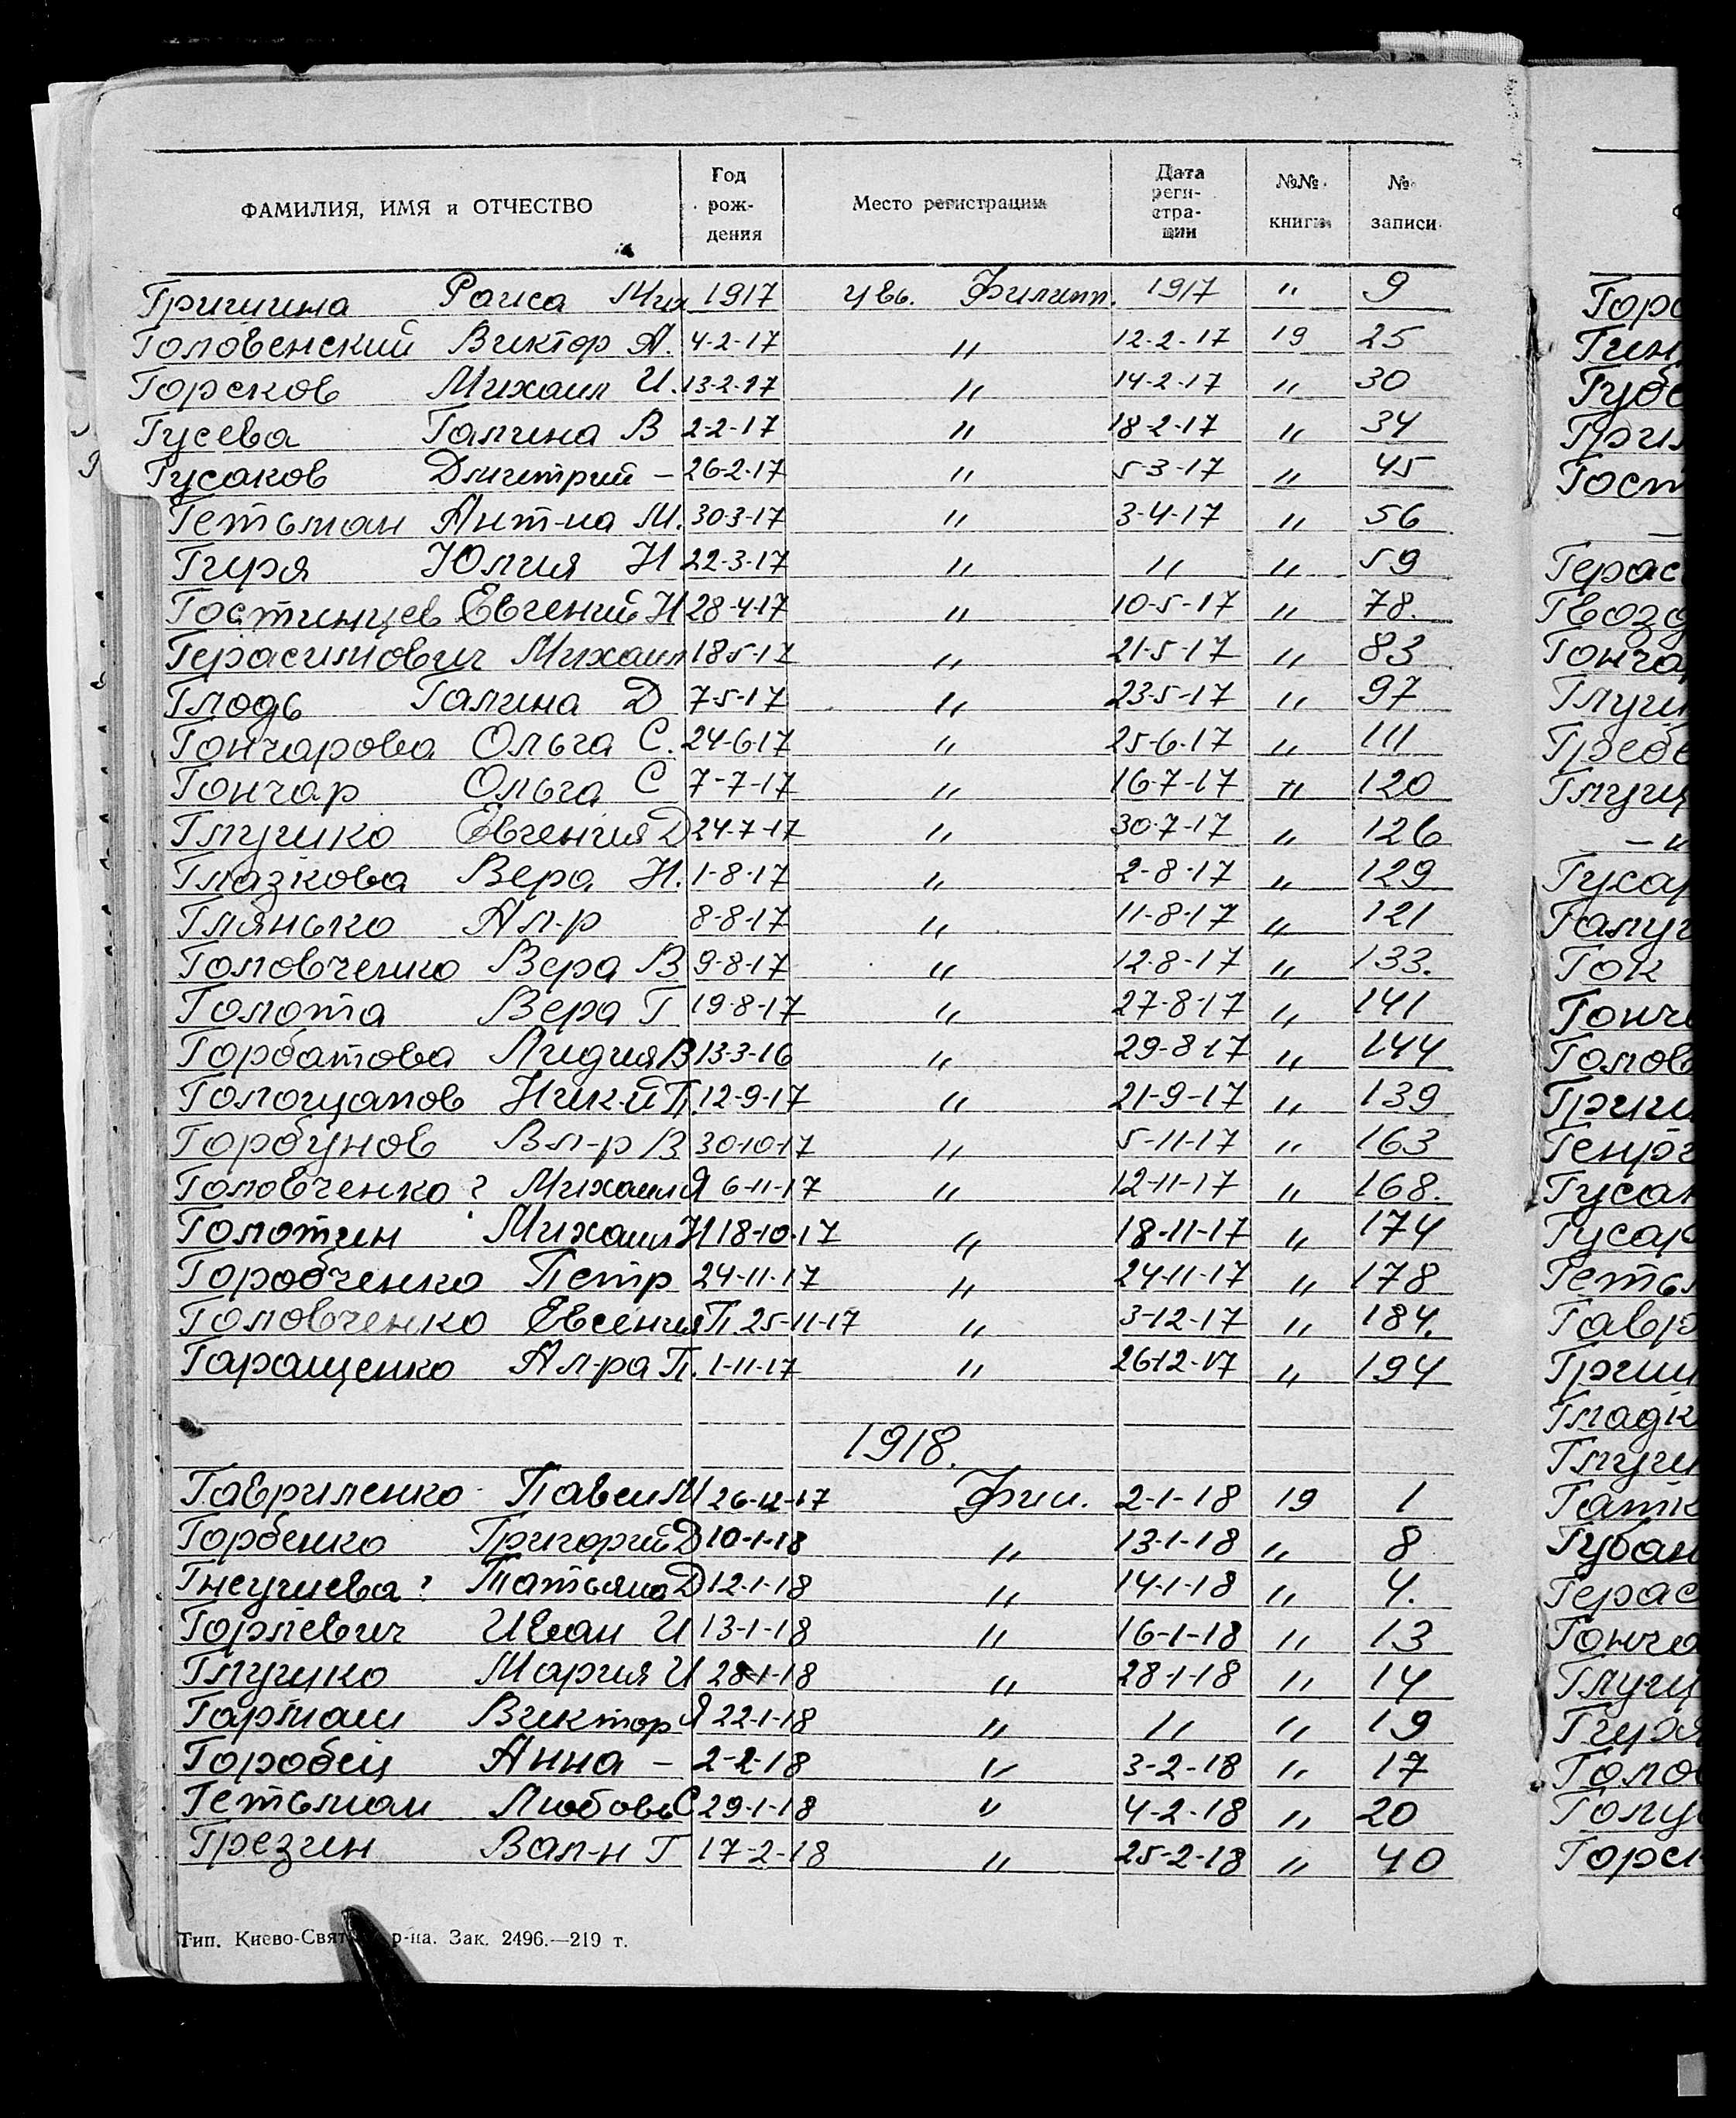 ФАМИЛИЯ, ИМЯ и ОТЧЕСТВО Год рождения Место регистрации Дата регистрации №№ книги № записи
Гришина Раиса Мих 1917 цвь. Филипп. 1917 " 9
Головенский Виктор А. 4-2-17 " 12-2-17 19 25
Горсков Михаил И. 13-2-17 " 14-2-17 " 30
Гусева Галина В 2-2-17 " 18-2-17 " 34
Гусаков Дмитрий – 26-2-17 " 5-3-17 " 45
Гетьман Ант-на М. 30-3-17 " 3-4-17 " 56
Гиря Юлия Н 22-3-17 " " " 59
Гостинцев Евгений Н 28-4-17 " 10-5-17 " 78.
Герасимович Михаил 18-5-17 " 21-5-17 " 83
Глодь Галина Д 7-5-17 " 23-5-17 " 97
Гончарова Ольга С. 24-6-17 " 25-6-17 " 111
Гончар Ольга С 7-7-17 " 16-7-17 " 120
Глушко Евгения Д 24-7-17 " 30-7-17 " 126
Глазкова Вера Н. 1-8-17 " 2-8-17 " 129
Глянько Ал-р 8-8-17 " 11-8-17 " 121
Головченко Вера В 9-8-17 " 12-8-17 " 133.
Голота Вера Г 19-8-17 " 27-8-17 " 141
Горбатова Лидия В 13-3-16 " 29-8-17 " 144
Голощапов Ник-й П. 12-9-17 " 21-9-17 " 139
Горбунов Вл-р В 30-10-17 " 5-11-17 " 163
Головченко ? Михаил Я 6-11-17 " 12-11-17 " 168.
Голотин Михаил Н 18-10-17 " 18-11-17 " 174
Горобченко Петр 24-11-17 " 24-11-17 " 178
Головченко Евсения П. 25-11-17 " 3-12-17 " 184.
Гаращенко Ал-ра П. 1-11-17 " 26-12-17 " 194
1918.
Гавриленко Павел М 26-12-17 Фил. 2-1-18 19 1
Горбенко Григорий Д 10-1-18 " 13-1-18 " 8
Гнеушева ? Татьяна Д 12-1-18 " 14-1-18 " 4.
Горлевич Иван И 13-1-18 " 16-1-18 " 13
Глушко Мария И 28-1-18 " 28-1-18 " 14
Гармаш Виктор Я 22-1-18 " " " 19
Горобец Анна – 2-2-18 " 3-2-18 " 17
Гетьман Любовь С 29-1-18 " 4-2-18 " 20
Грезин Вал-н Г 17-2-18 " 25-2-18 " 40
Тип. Киево-Свят р-на. Зак. 2496.—219 т.